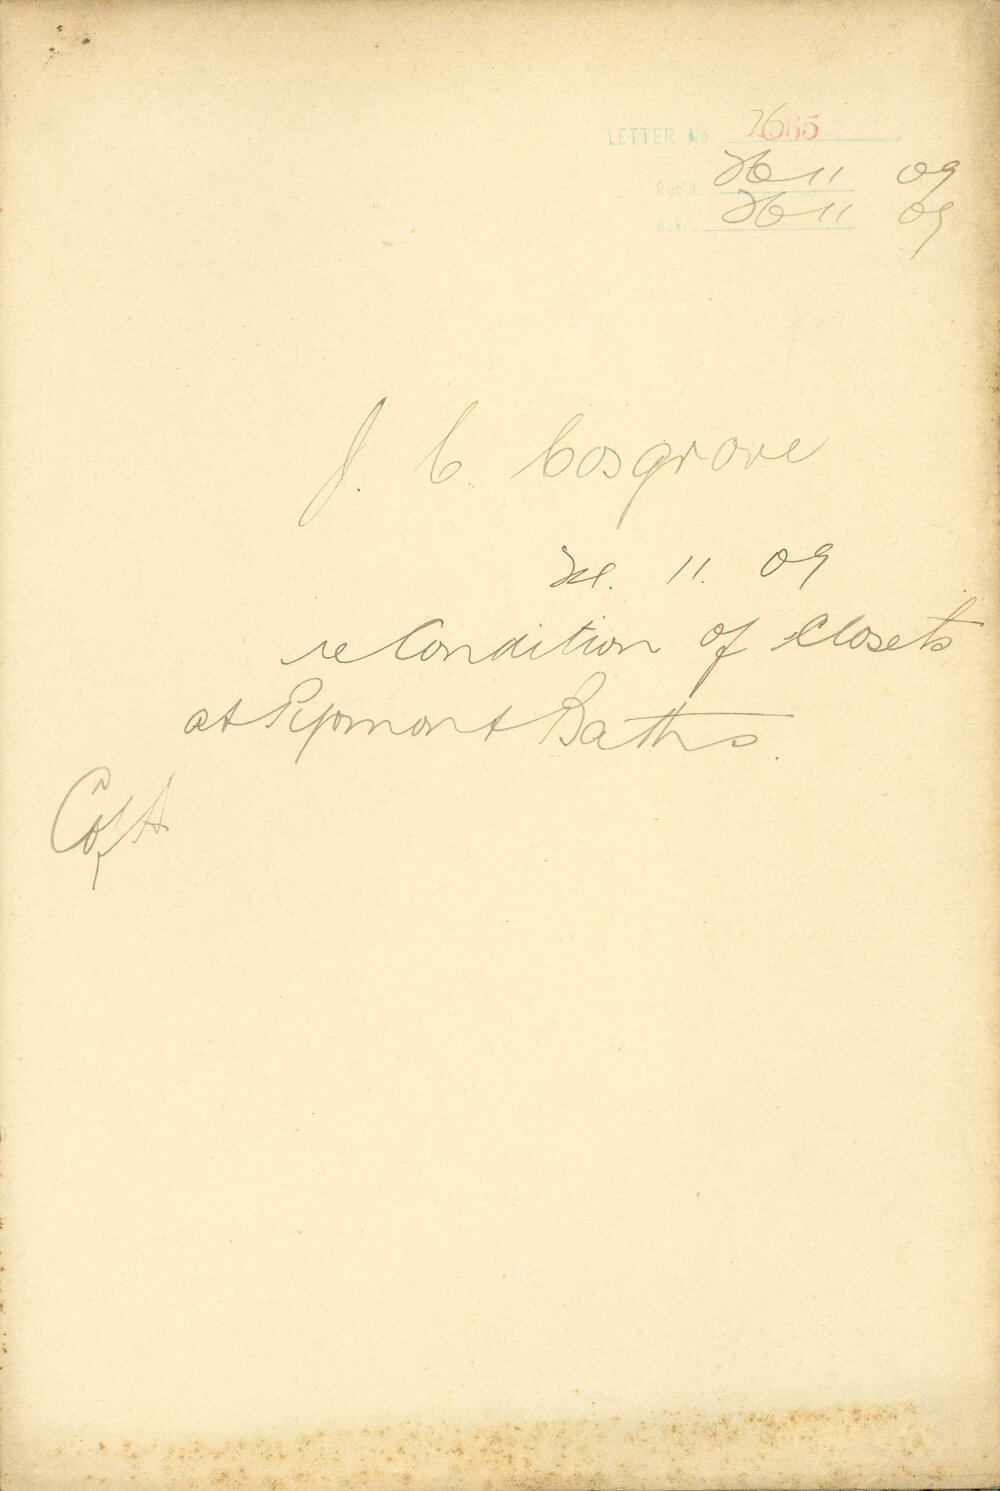 LETTER No 2665
Rec'd. 26 11 09
Ack. 26 11 09
J. C. Cosgrove
11. 09
re Condition of Closets
at Pyrmont Baths.